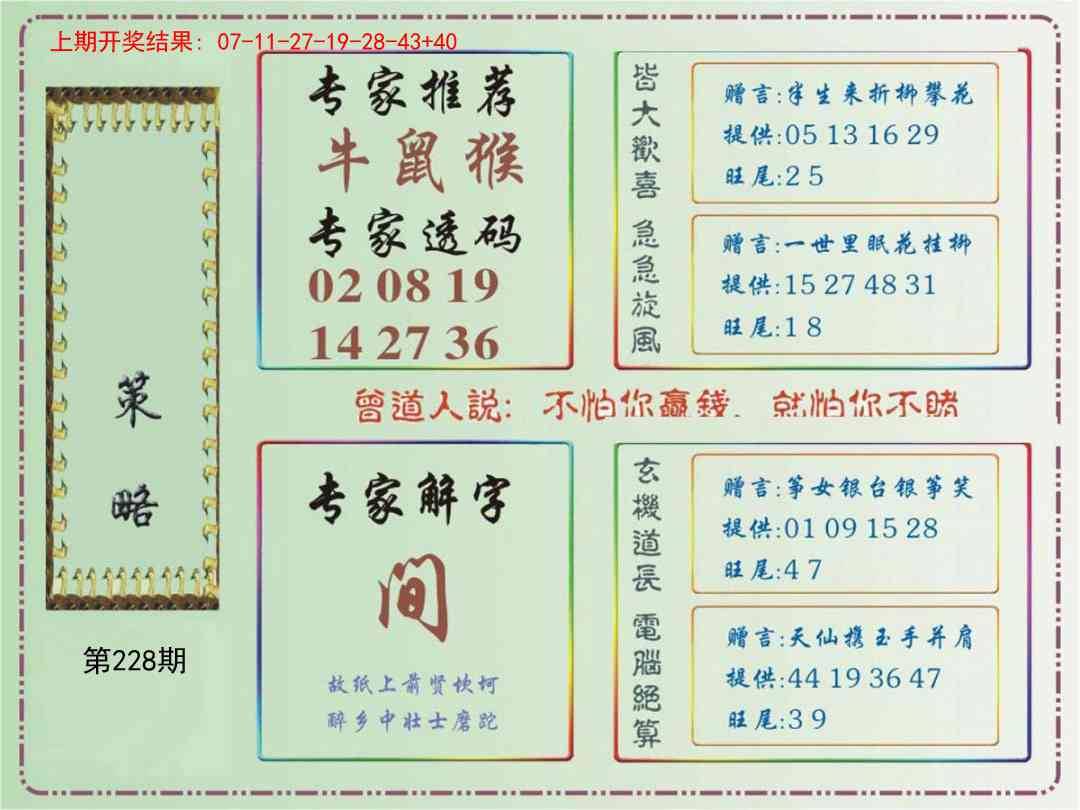 上期开奖结果：07-11-27-19-28-43+40
策略
第228期
专家推荐
牛鼠猴
专家透码
02 08 19
14 27 36
皆大歡喜
赠言:半生来折柳攀花
提供:05 13 16 29
旺尾:2 5
急急旋風
赠言:一世里眠花挂柳
提供:15 27 48 31
旺尾:1 8
曾道人説：不怕你贏錢，就怕你不賭
专家解字
间
故纸上前贤坎坷
醉乡中壮士磨跎
玄機道長
赠言:筝女银台银筝笑
提供:01 09 15 28
旺尾:4 7
電腦絕算
赠言:天仙携玉手并肩
提供:44 19 36 47
旺尾:3 9